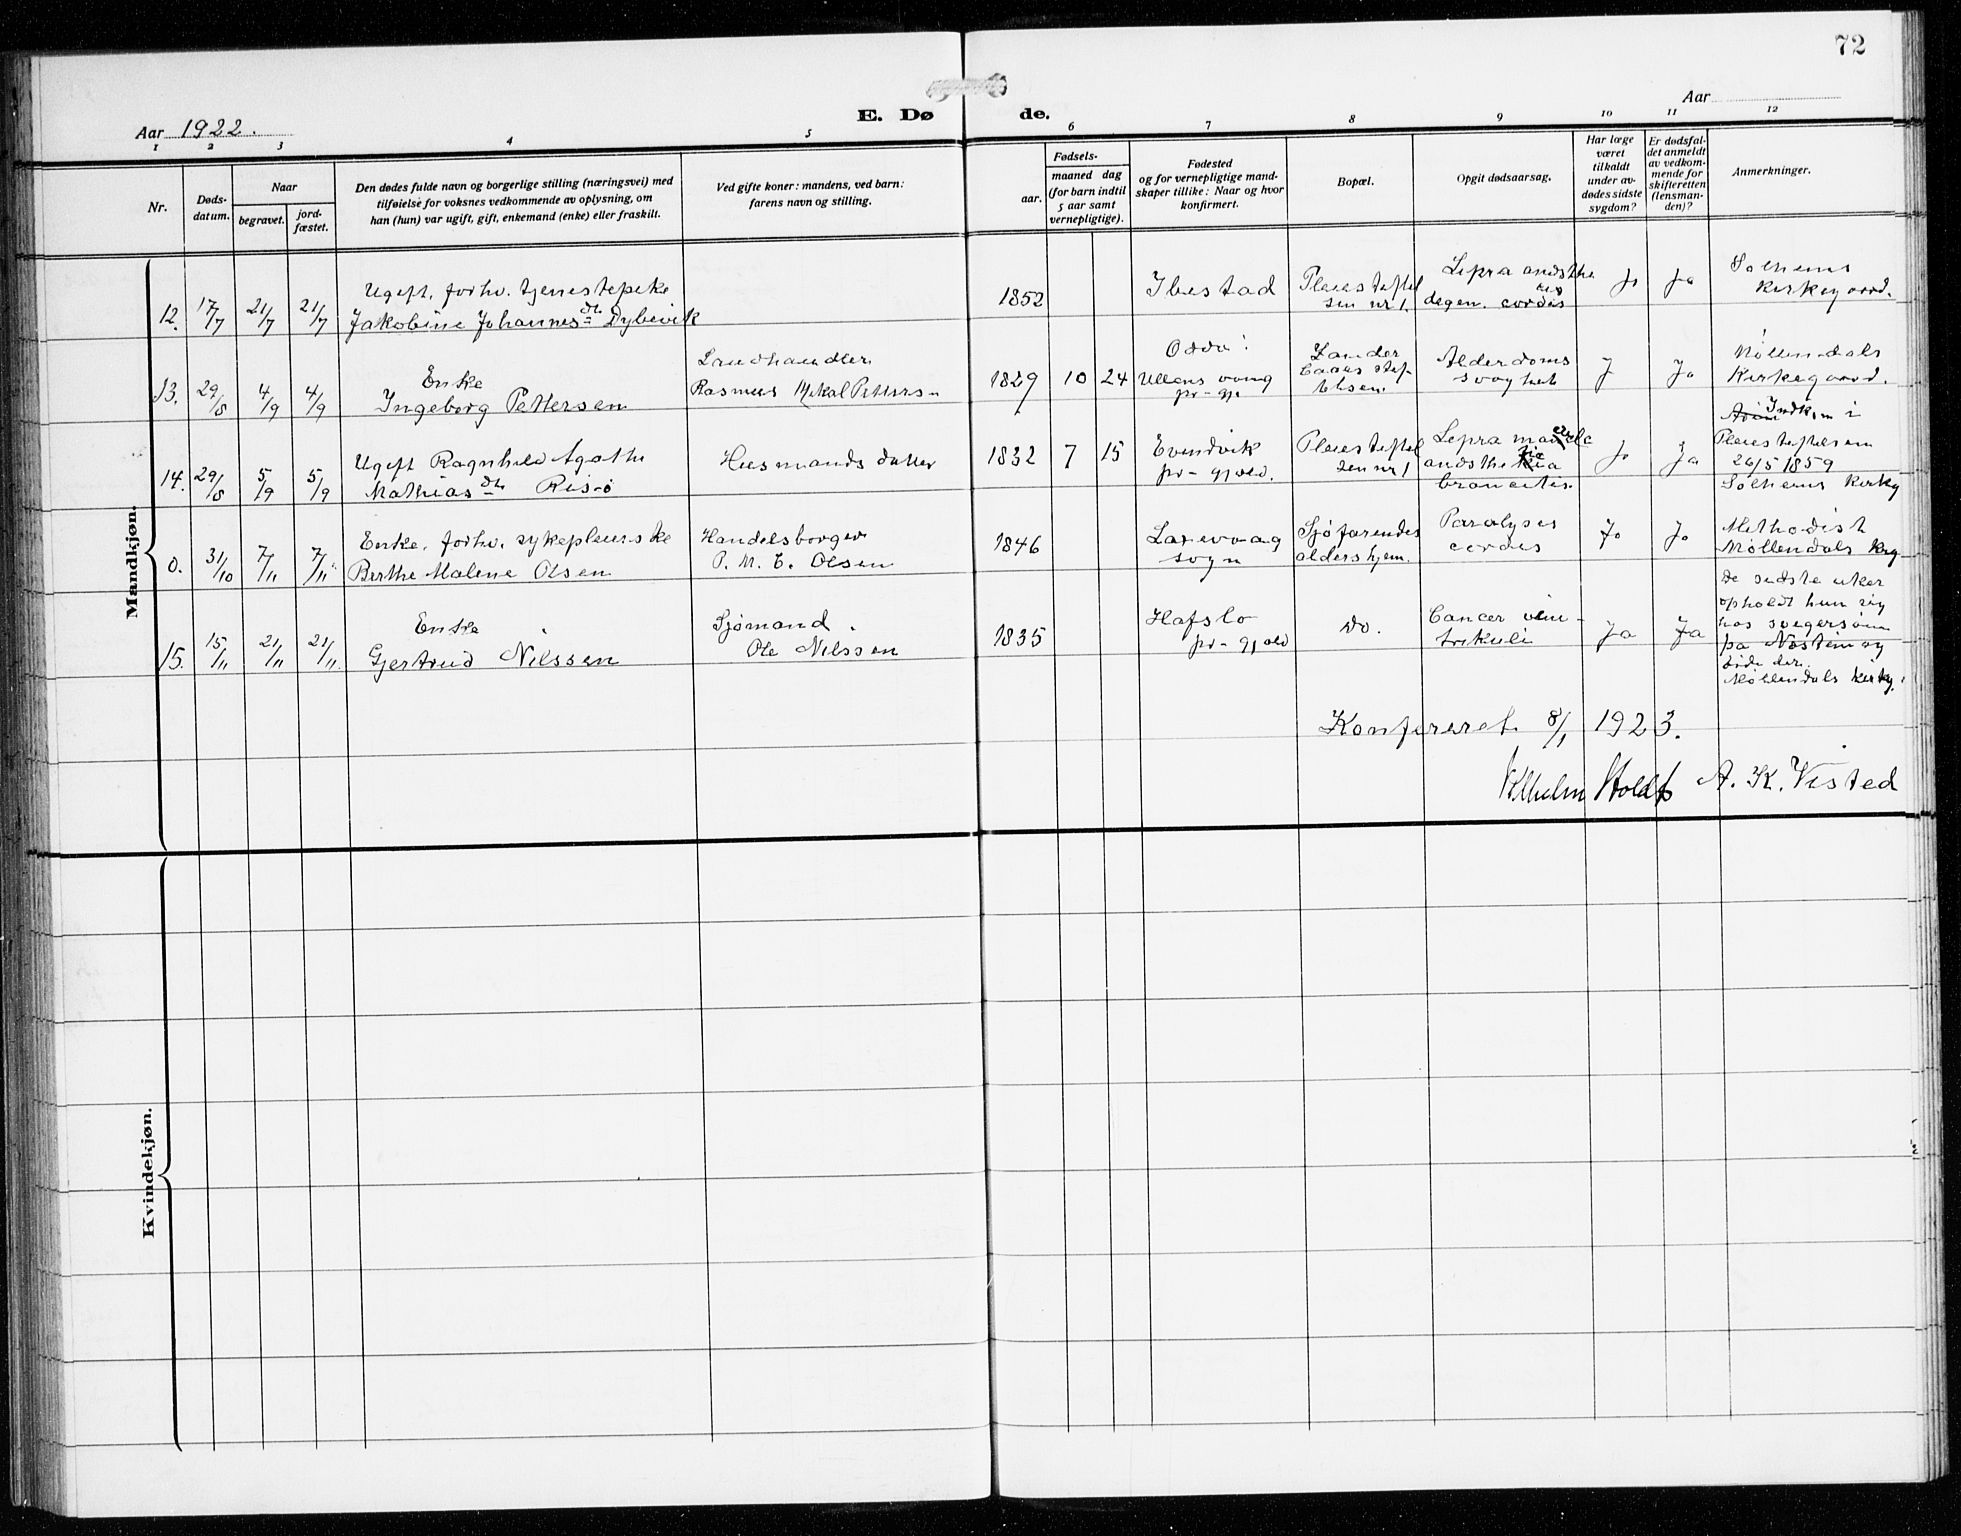 72
Aar 1922.
E. Døde.
Aar
1 2 3 4 5 6 7 8 9 10 11 12
Nr.
Døds-
datum.
Naar
begravet.
jord-
fæstet.
Den dødes fulde navn og borgerlige stilling (næringsvei) med
tilføielse for voksnes vedkommende av oplysning, om
han (hun) var ugift, gift, enkemand (enke) eller fraskilt.
Ved gifte koner: mandens, ved barn:
farens navn og stilling.
Fødsels-
aar.
maaned dag
(for barn indtil
5 aar samt
vernepligtige).
Fødested
og for vernepligtige mand-
skaper tillike: Naar og hvor
konfirmert.
Bopæl.
Opgit dødsaarsag.
Har læge
været
tilkaldt
under av-
dødes sidste
sygdom?
Er dødsfal-
det anmeldt
av vedkom-
mende for
skifteretten
(lensman-
den)?
Anmerkninger.
Mandkjøn.
12. 17/7 21/7 21/7
Ugift, forhv. tjenestepike
Jakobine Johannesdtr Dybevik
1852
Ibestad
Pleiestiftel
sen nr 1.
Lepra anästhe
degen. cordis
Ja
Ja
Solheims
Kirkegaard.
13. 29/8 4/9 4/9
Enke
Ingeborg Pettersen
Landhandler
Rasmus Mikal Petters-n
1829 10 24
Odda i
Ullensvang
pr-gj.
Zander
Caaes stif-
telsen.
Alderdoms
svaghet
J
Ja
Møllendals
Kirkegaard.
14. 29/8 5/9 5/9
Ugift Ragnhild Agathe
Mathiasdtr Risø
Husmands datter
1832 7 15
Evindvik
pr-gjæld.
Pleiestiftel
sen nr 1
Lepra
bronchitis.
Ja
Ja
Indkom i
Pleiestiftelsen
26/5 1859
Solheims Kirkg
0. 31/10 7/11 7/11
Enke, forhv. sykepleierske
Berthe Malene Olsen
Handelsborger
P. M. E. Olsen
1846
Laxevaag
sogn
Sjøfarendes
aldershjem.
Paralysis
cordis
Ja
Ja
Methodist
Møllendals Krg
15. 15/11 21/11 21/11
Enke
Gjertrud Nilssen
Sjømand
Ole Nilssen
1835
Hafslo
pr-gjæld
Do.
Cancer ven-
trikuli
Ja
Ja
De sidste uker
opholdt hun sig
hos svigersøn
pa Nøstein og
døde der.
Møllendals Kirkg.
Konfereret 8/1 1923.
Vilhelm Holdt A. K. Visted
Kvindekjøn.